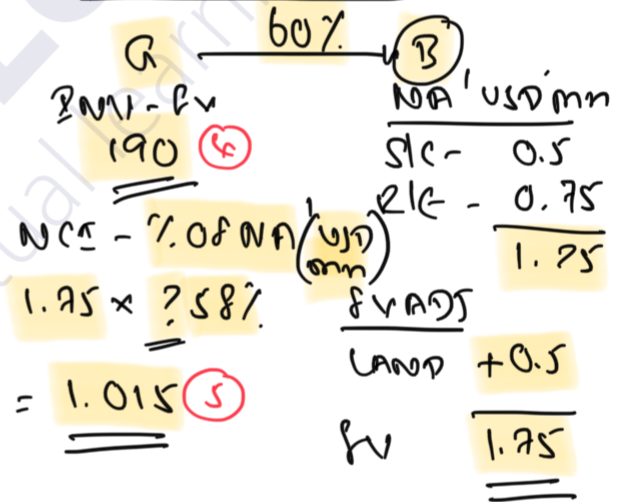 G 60% B
INV - FV
190 4
NCI - % OF NA (USD mn)
1.75 × ? 58%
= 1.015 5
NA' USD'mn
S/C - 0.5
R/E - 0.75
1.25
FV ADJ
LAND +0.5
FV 1.75
ual learn